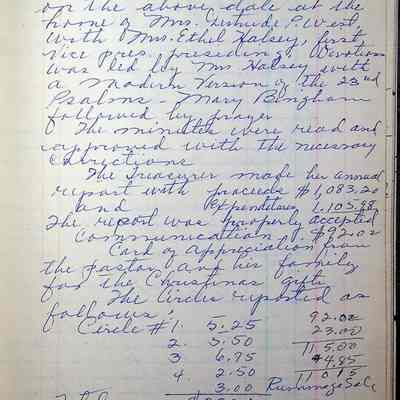 on the above date at the
home of Mrs. Gertrude P. West
with Mrs. Ethel Halsey, first
vice pres. presiding. Devotions
was led by Mrs Halsey with
a Modern Version of the 23rd
Psalms - Mary Bingham
followed by prayer
The minutes were read and
approved with the necessary
corrections
The Treasurer made her annual
report with proceeds $1,083.20
and Expenditures 1,105.98
The report was properly accepted
Communication $92.02
Card of Appreciation from
the pastor and his family
for the Christmas gifts
The Circles reported as
follows:
Circle #1. 5.25 92.00
2. 5.50 23.00
3 6.75 115.00
4. 2.50 4.85
3.00 Rummage Sale